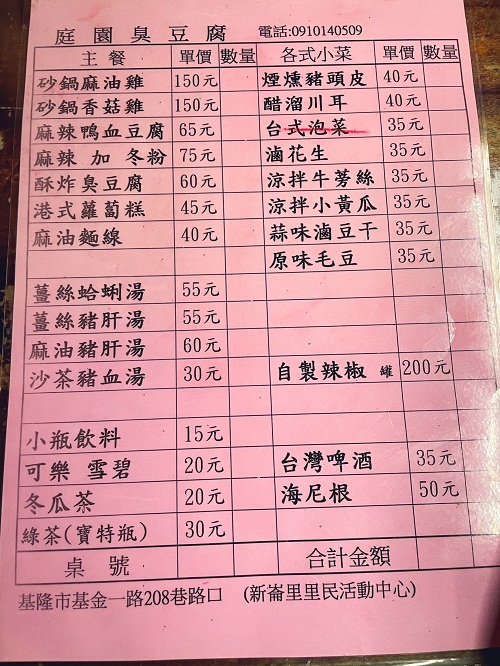 庭園臭豆腐 電話:0910140509
主餐 單價 數量 各式小菜 單價 數量
砂鍋麻油雞 150元 煙燻豬頭皮 40元
砂鍋香菇雞 150元 醋溜川耳 40元
麻辣鴨血豆腐 65元 台式泡菜 35元
麻辣 加 冬粉 75元 滷花生 35元
酥炸臭豆腐 60元 涼拌牛蒡絲 35元
港式蘿蔔糕 45元 涼拌小黃瓜 35元
麻油麵線 40元 蒜味滷豆干 35元
原味毛豆 35元
薑絲蛤蜊湯 55元
薑絲豬肝湯 55元
麻油豬肝湯 60元
沙茶豬血湯 30元 自製辣椒 罐 200元
小瓶飲料 15元
可樂 雪碧 20元 台灣啤酒 35元
冬瓜茶 20元 海尼根 50元
綠茶(寶特瓶) 30元
桌號 合計金額
基隆市基金一路208巷路口 (新崙里里民活動中心)